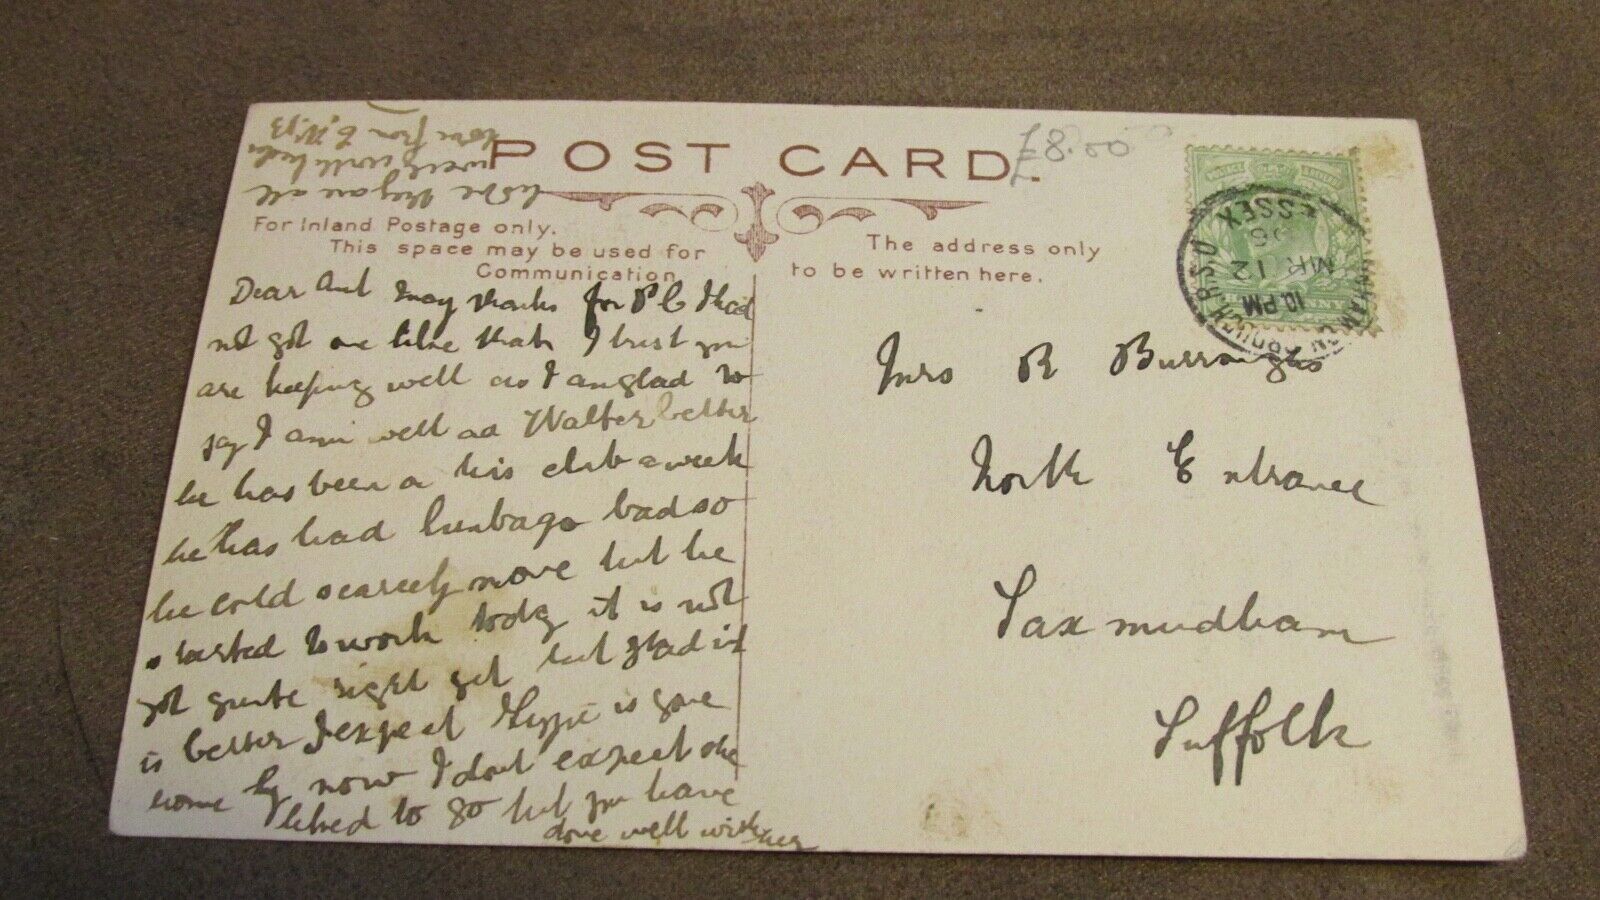 POST CARD.
£8.00
For Inland Postage only.
This space may be used for
Communication
The address only
to be written here.
ESSEX
MR 12
10. PM
Dear Aunt many thanks for P C I had
not got one like that I trust you
are keeping well as I am glad to
say I am well as Walter better
he has been on his club a week
he has had lumbago bad so
he cold scarcely move but he
started to work today it is not
got quite right yet but glad it
is better I expect is gone
home by now I dont expect she
liked to go but you have
done well with her
hope they are all
well with best
love from
Mrs R Burroughs
North Entrance
Saxmundham
Suffolk